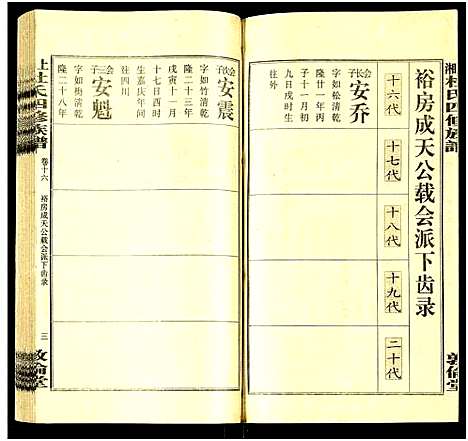 湘杜氏四修族谱
敦伦堂
裕房成天公载会派下齿录
十六代
十七代
十八代
十九代
二十代
会长子 安乔
字如松清乾
隆廿一年丙
子十一月初
九日戌时生
往外
会次子 安震
字如竹清乾
隆二十三年
戊寅十一月
十七日酉时
生嘉庆年间
往四川
会三子 安魁
字如梅清乾
隆二十八年
上杜氏四修族谱
卷十六
裕房成天公载会派下齿录
三
敦伦堂